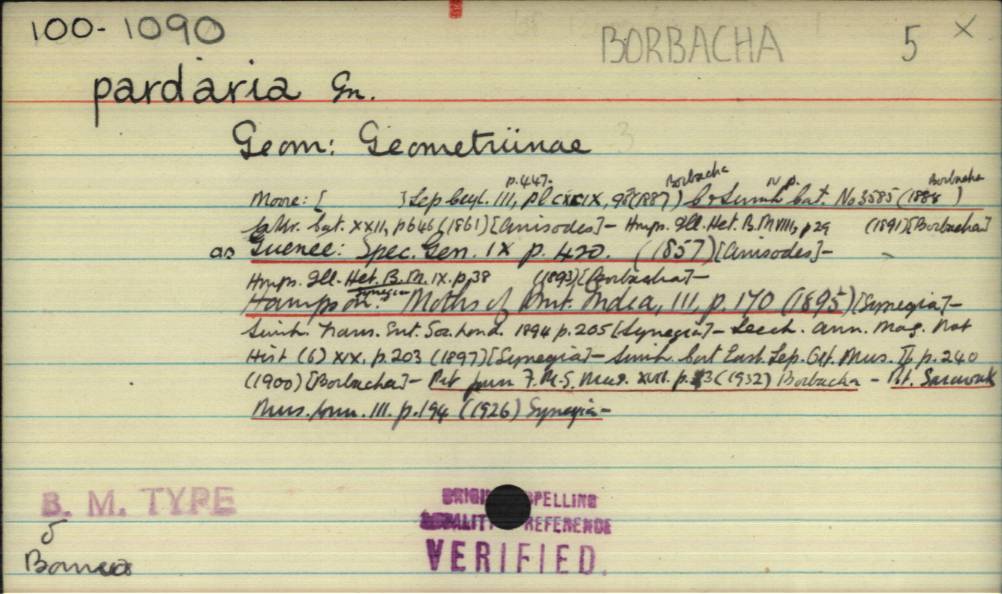 100-1090
BORBACHA 5 X
pardaria Gn.
Geom: Geometriinae
p.447. Borbacha Borbacha
Moore: [ ] Lep Ceyl. III, pl CXCIX, 98 (1887) Cat. No 3585 (1888)
Walk. Cat. XXII, p646 (1861) [Anisodes] - Hmps. Ill. Het. B.M VIII, p29 (1891) [Borbacha]
as Guenee: Spec. Gen. IX p. 420. (1857) [Anisodes] -
Hmps. Ill. Het. B.M. IX. p.38 (1893) [Borbacha] -
Synegia
Hampson: Moths of Brit. India, III, p. 170 (1895) [Synegia] -
Swinh. Trans. Ent. Soc. Lond. 1894 p.205 [Synegia] - Leech. Ann. Mag. Nat
Hist (6) XIX, p.203 (1897) [Synegia] - Swinh. Cat East. Lep. Het. Mus. II p.240
(1900) [Borbacha] - Prt Journ F.M.S. Mus. XVII. p. 3 (1932) Borbacha - Prt. Sarawak
Mus. Journ. III. p.194 (1926) Synegia -
B. M. TYPE
Borneo
ORIGIN SPELLING
LOCALITY REFERENCE
VERIFIED.